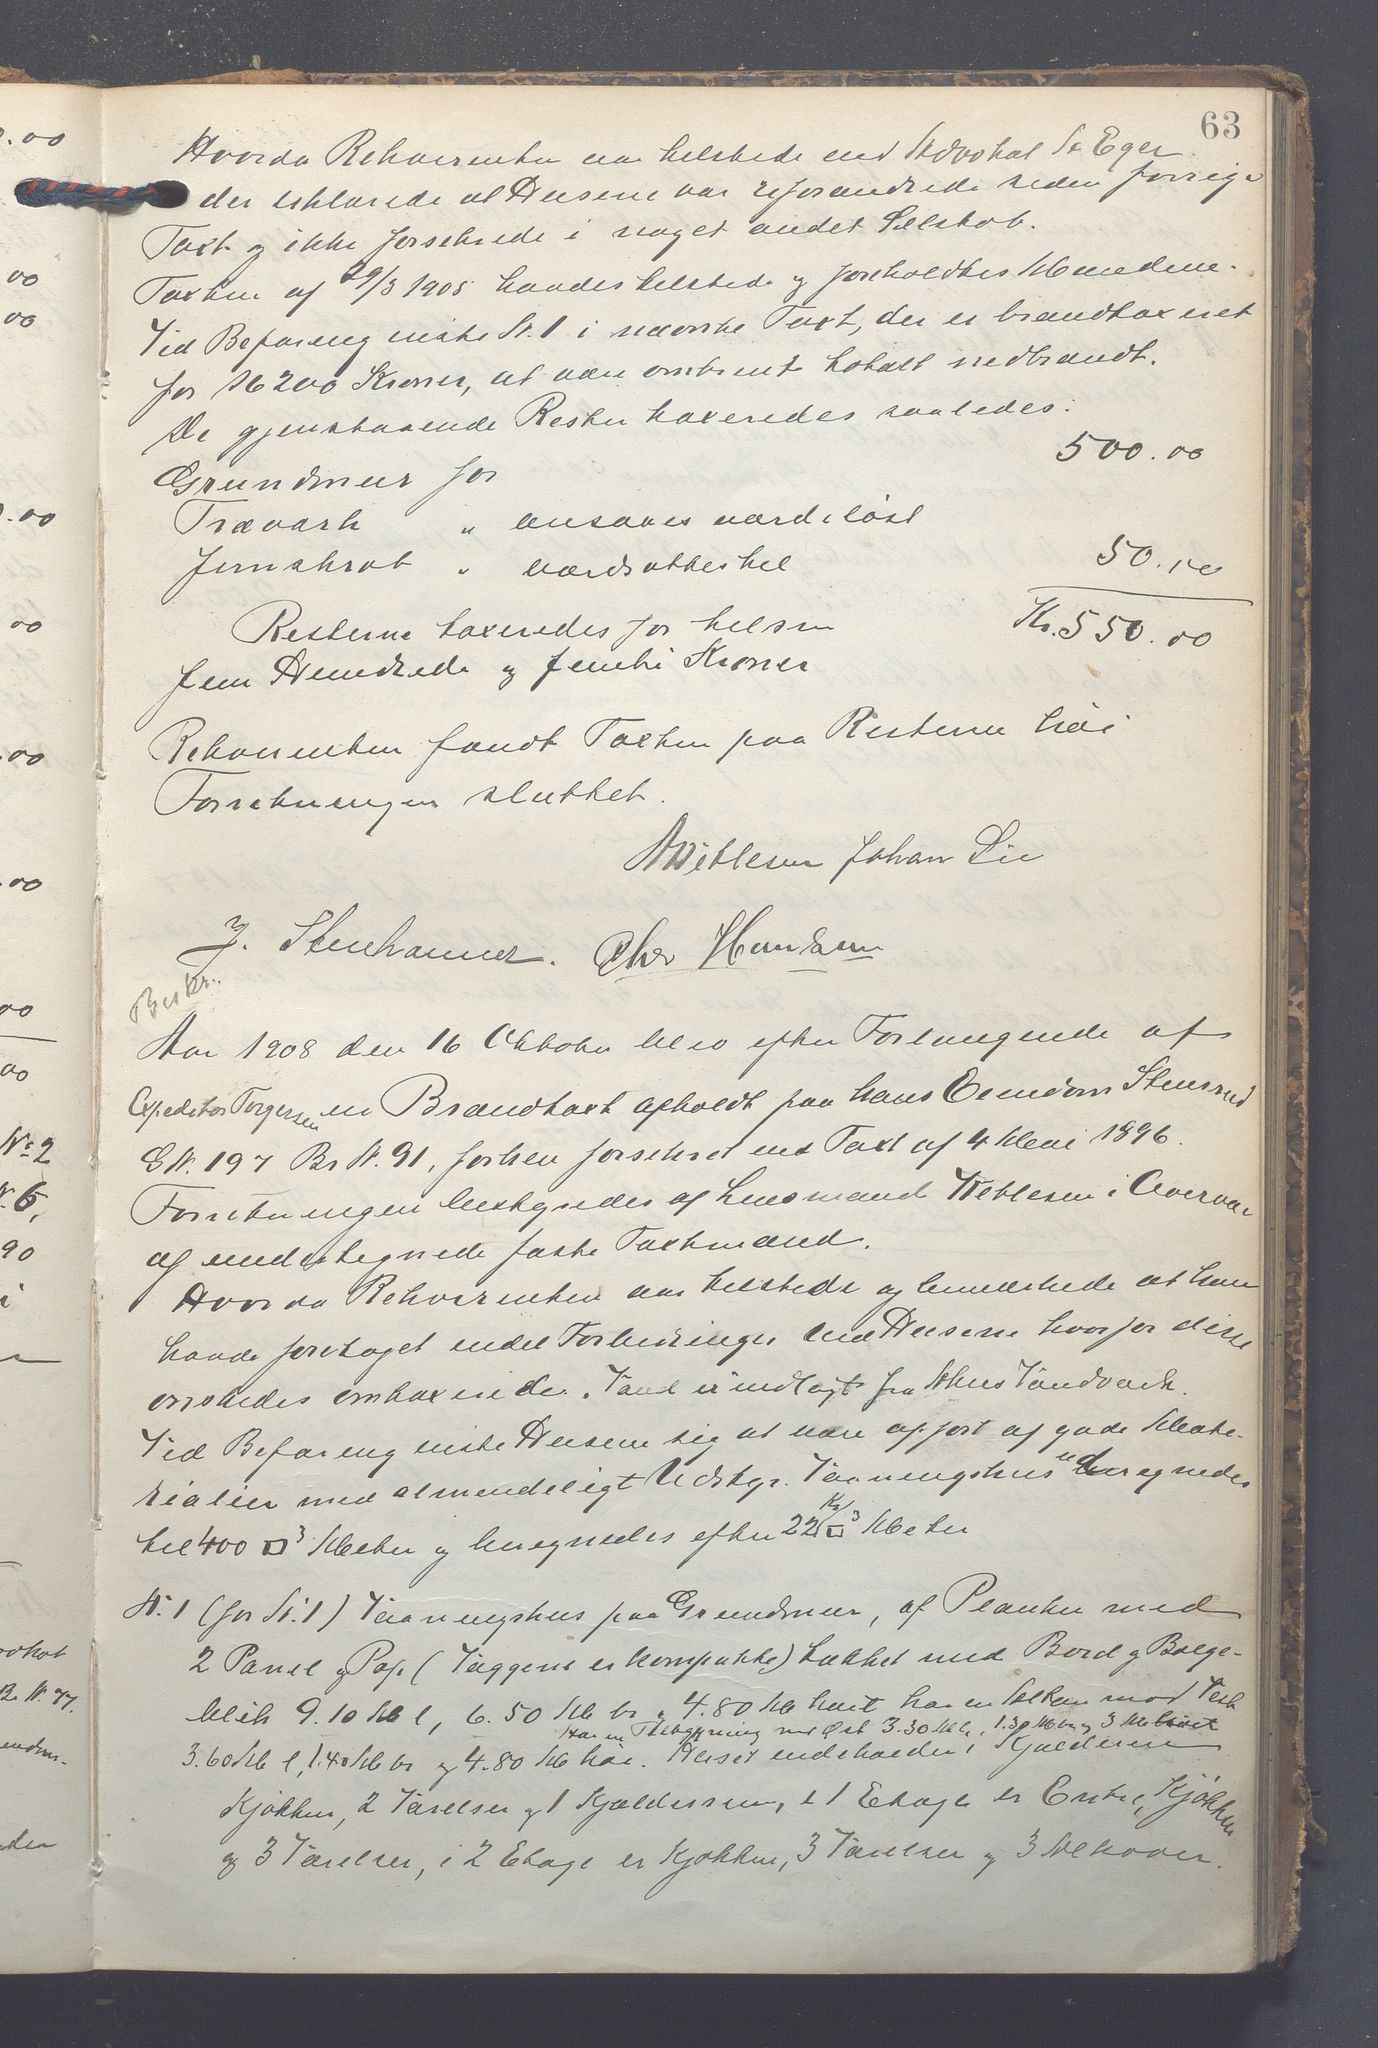 63
Hvorda Rekvirenten var tilstede ved Advokat St Eger
der erklærede at Husene var uforandrede siden forrige
Taxt og ikke forsikrede i noget andet Selskab.
Taxten af 29/3 1905 havdes tilstede og foreholdtes Mændene.
Ved Befaring viste No. 1 i nævnte Taxt, der er brandtaxeret
for 16200 Kroner, at være omtrent totalt nedbrændt.
De gjenstaaende Rester taxeredes saaledes:
Grundmur for 500.00
Træværk " ansaaes værdiløst
Jernskrab " værdsættes til 50.00
Resterne taxeredes for tilsm Kr. 550.00
fem Hundrede og femti Kroner
Rekvirenten fandt Taxten paa Resterne høi
Forretningen sluttet.
AWetlesen Johan Lie
J. Stenhammer. Chr Hansen
Beskr.
Aar 1908 den 16 Oktober blev efter Forlangende af
Expeditør Torgersen en Brandtaxt afholdt paa hans Eiendom Stensrud
G N. 197 Br N. 91, før hen forsikret ved Taxt af 4 Mai 1896.
Forretningen bestyredes af Lensmand Wetlesen i Overvær
af undertegnede faste Taxtmænd.
Hvorda Rekvirenten var tilstede og bemærkede at han
havde foretaget endel Forbedringer ved Husene hvorfor disse
ønskedes omtaxerede. Vand er indlagt fra Akers Vandværk.
Ved Befaring viste Husene sig at være opført af gode Mate-
rialier med almindeligt Udstyr. Vaaningshuset udregnedes
til 400 □3 Meter og beregnedes efter 22 Kr □3 Meter
N. 1 (før N. 1) Vaaningshus paa Grundmur, af Planker med
2 Panel og Pap (Væggene er kompakte) tækket med Bord og Bølge-
blik 9.10 M l, 6.50 M br og 4.80 M høit har en Altan mod Vest
Har en Tilbygning mod Øst 3.30 M l, 1.30 M br og 3 M høit
3.60 M l, 1.40 M br og 4.80 M høi. Huset indeholder i Kjælderen
Kjøkken, 2 Værelser og 1 Kjælderrum, i 1 Etage er Entre, Kjøkken
og 3 Værelser, i 2 Etage er Kjøkken, 3 Værelser og 3 Alkover.